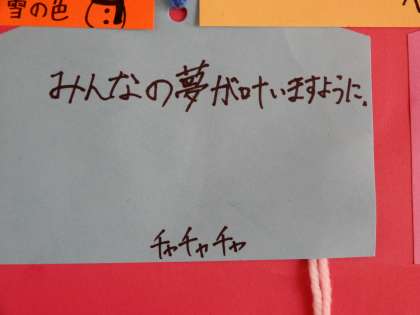 雪の色
みんなの夢が叶いますように。
チャチャチャ